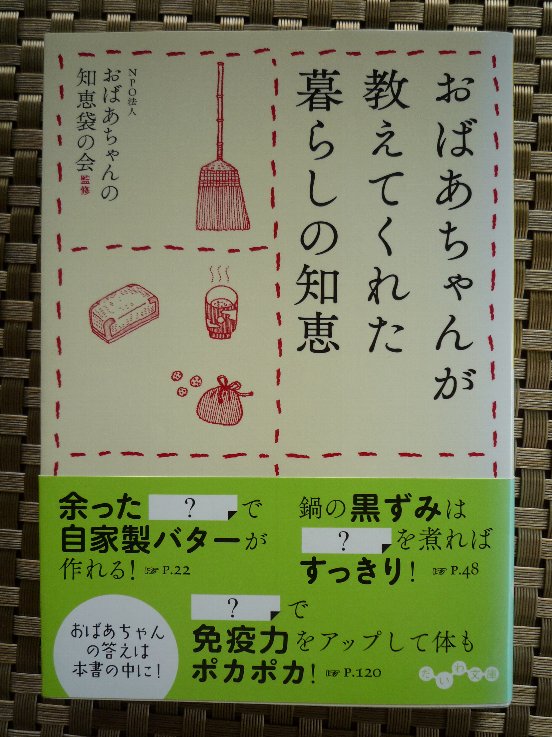 おばあちゃんが
教えてくれた
暮らしの知恵
NPO法人
おばあちゃんの
知恵袋の会 監修
余った ? で
自家製バターが
作れる! ☞ P.22
鍋の黒ずみは
? を煮れば
すっきり! ☞ P.48
? で
免疫力をアップして体も
ポカポカ! ☞ P.120
おばあちゃん
の答えは
本書の中に!
だいわ文庫